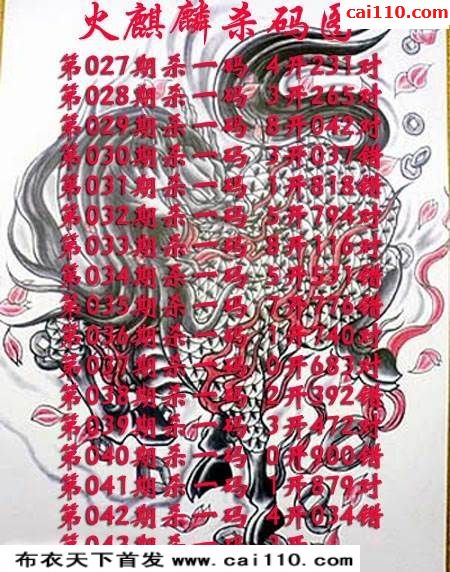 cai110.com
火麒麟杀码区
第027期杀一码 4开231对
第028期杀一码 3开265对
第029期杀一码 8开042对
第030期杀一码 3开037错
第031期杀一码 1开818错
第032期杀一码 5开794对
第033期杀一码 8开116对
第034期杀一码 5开531错
第035期杀一码 7开776错
第036期杀一码 1开740对
第037期杀一码 0开683对
第038期杀一码 2开392错
第039期杀一码 3开472对
第040期杀一码 0开900错
第041期杀一码 1开879对
第042期杀一码 4开034错
布衣天下首发 www.cai110.com